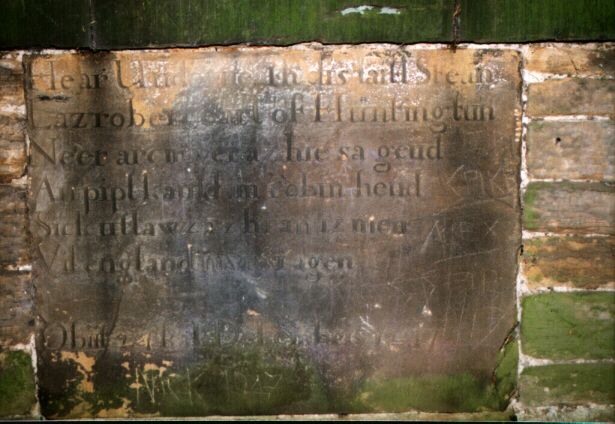 Hear Underneath dis laitl Stean
Laz robert earl of Huntingtun
Neer arcir ver az hie sa geud
An pipl kauld im robin heud
Sick utlawz az hi an iz men
Vil england nivr si agen
Obiit 24 Kal Dekembris 1247
NICK